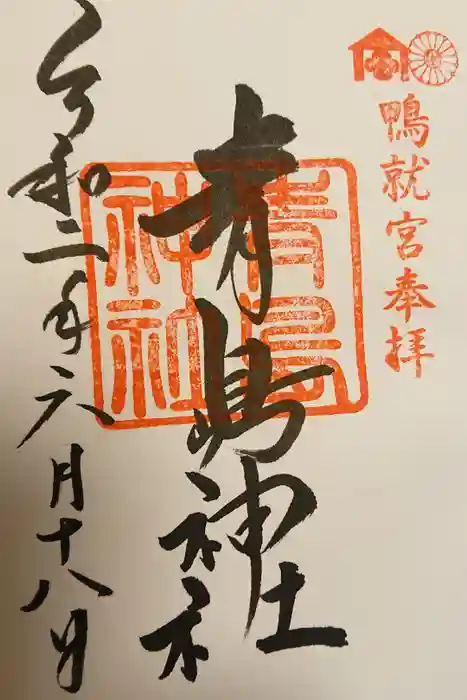 鴨就宮奉拝
青島神社
青島神社
令和二年六月十八日